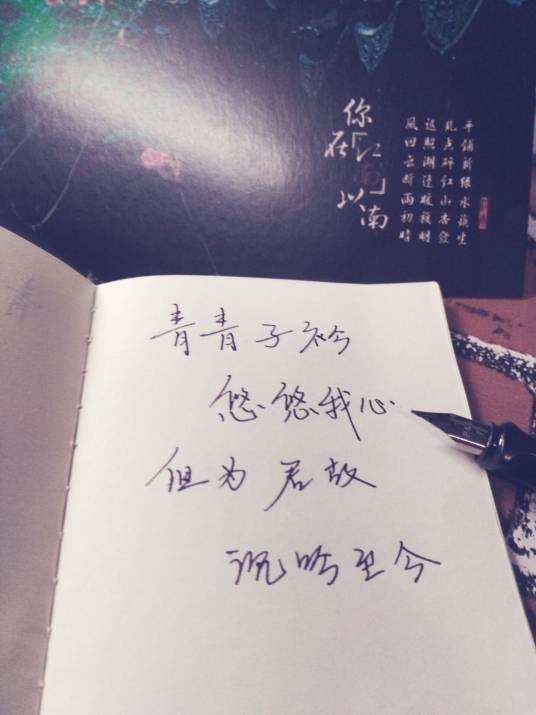 你在「江南」以南
風回云断雨初晴
返照湖邊暖複明
乱点碎红山杏發
平铺新绿水蘋生
青青子衿
悠悠我心
但为君故
沉吟至今